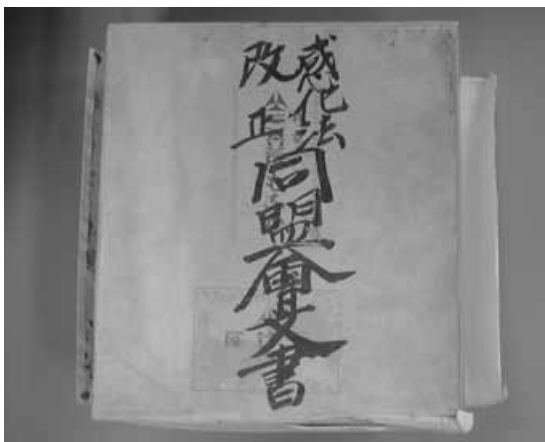 感化法
改正
同盟會文書